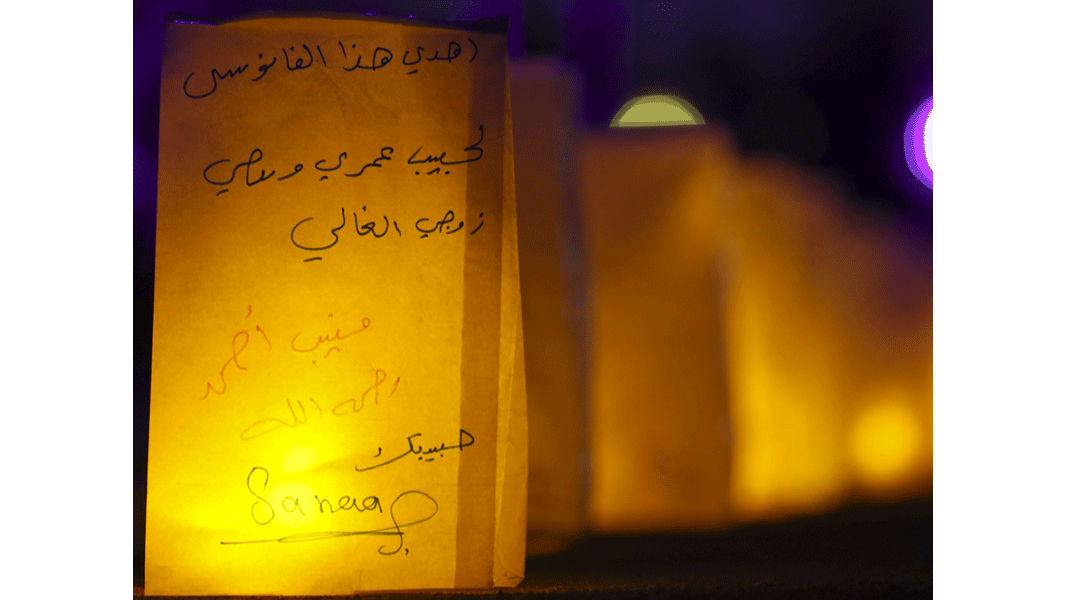 اهدي هذا الفانوس
لحبيب عمري وروحي
زوجي الغالي
منيب أحمد
رحمه الله
حبيبتك
Sanaa